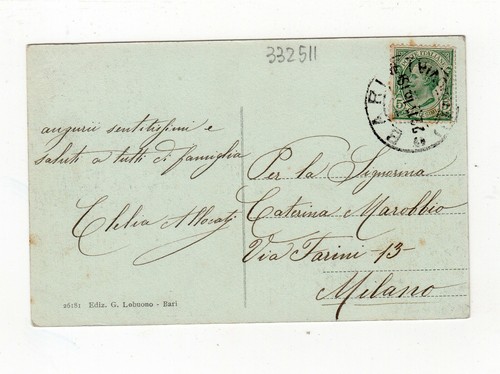 332511
POSTE ITALIANE
BARI
auguri sentitissimi e
saluti a tutti di famiglia
Clelia
Per la Signorina
Caterina Marobbio
Via Farini -13-
Milano
26181 Ediz. G. Lobuono - Bari